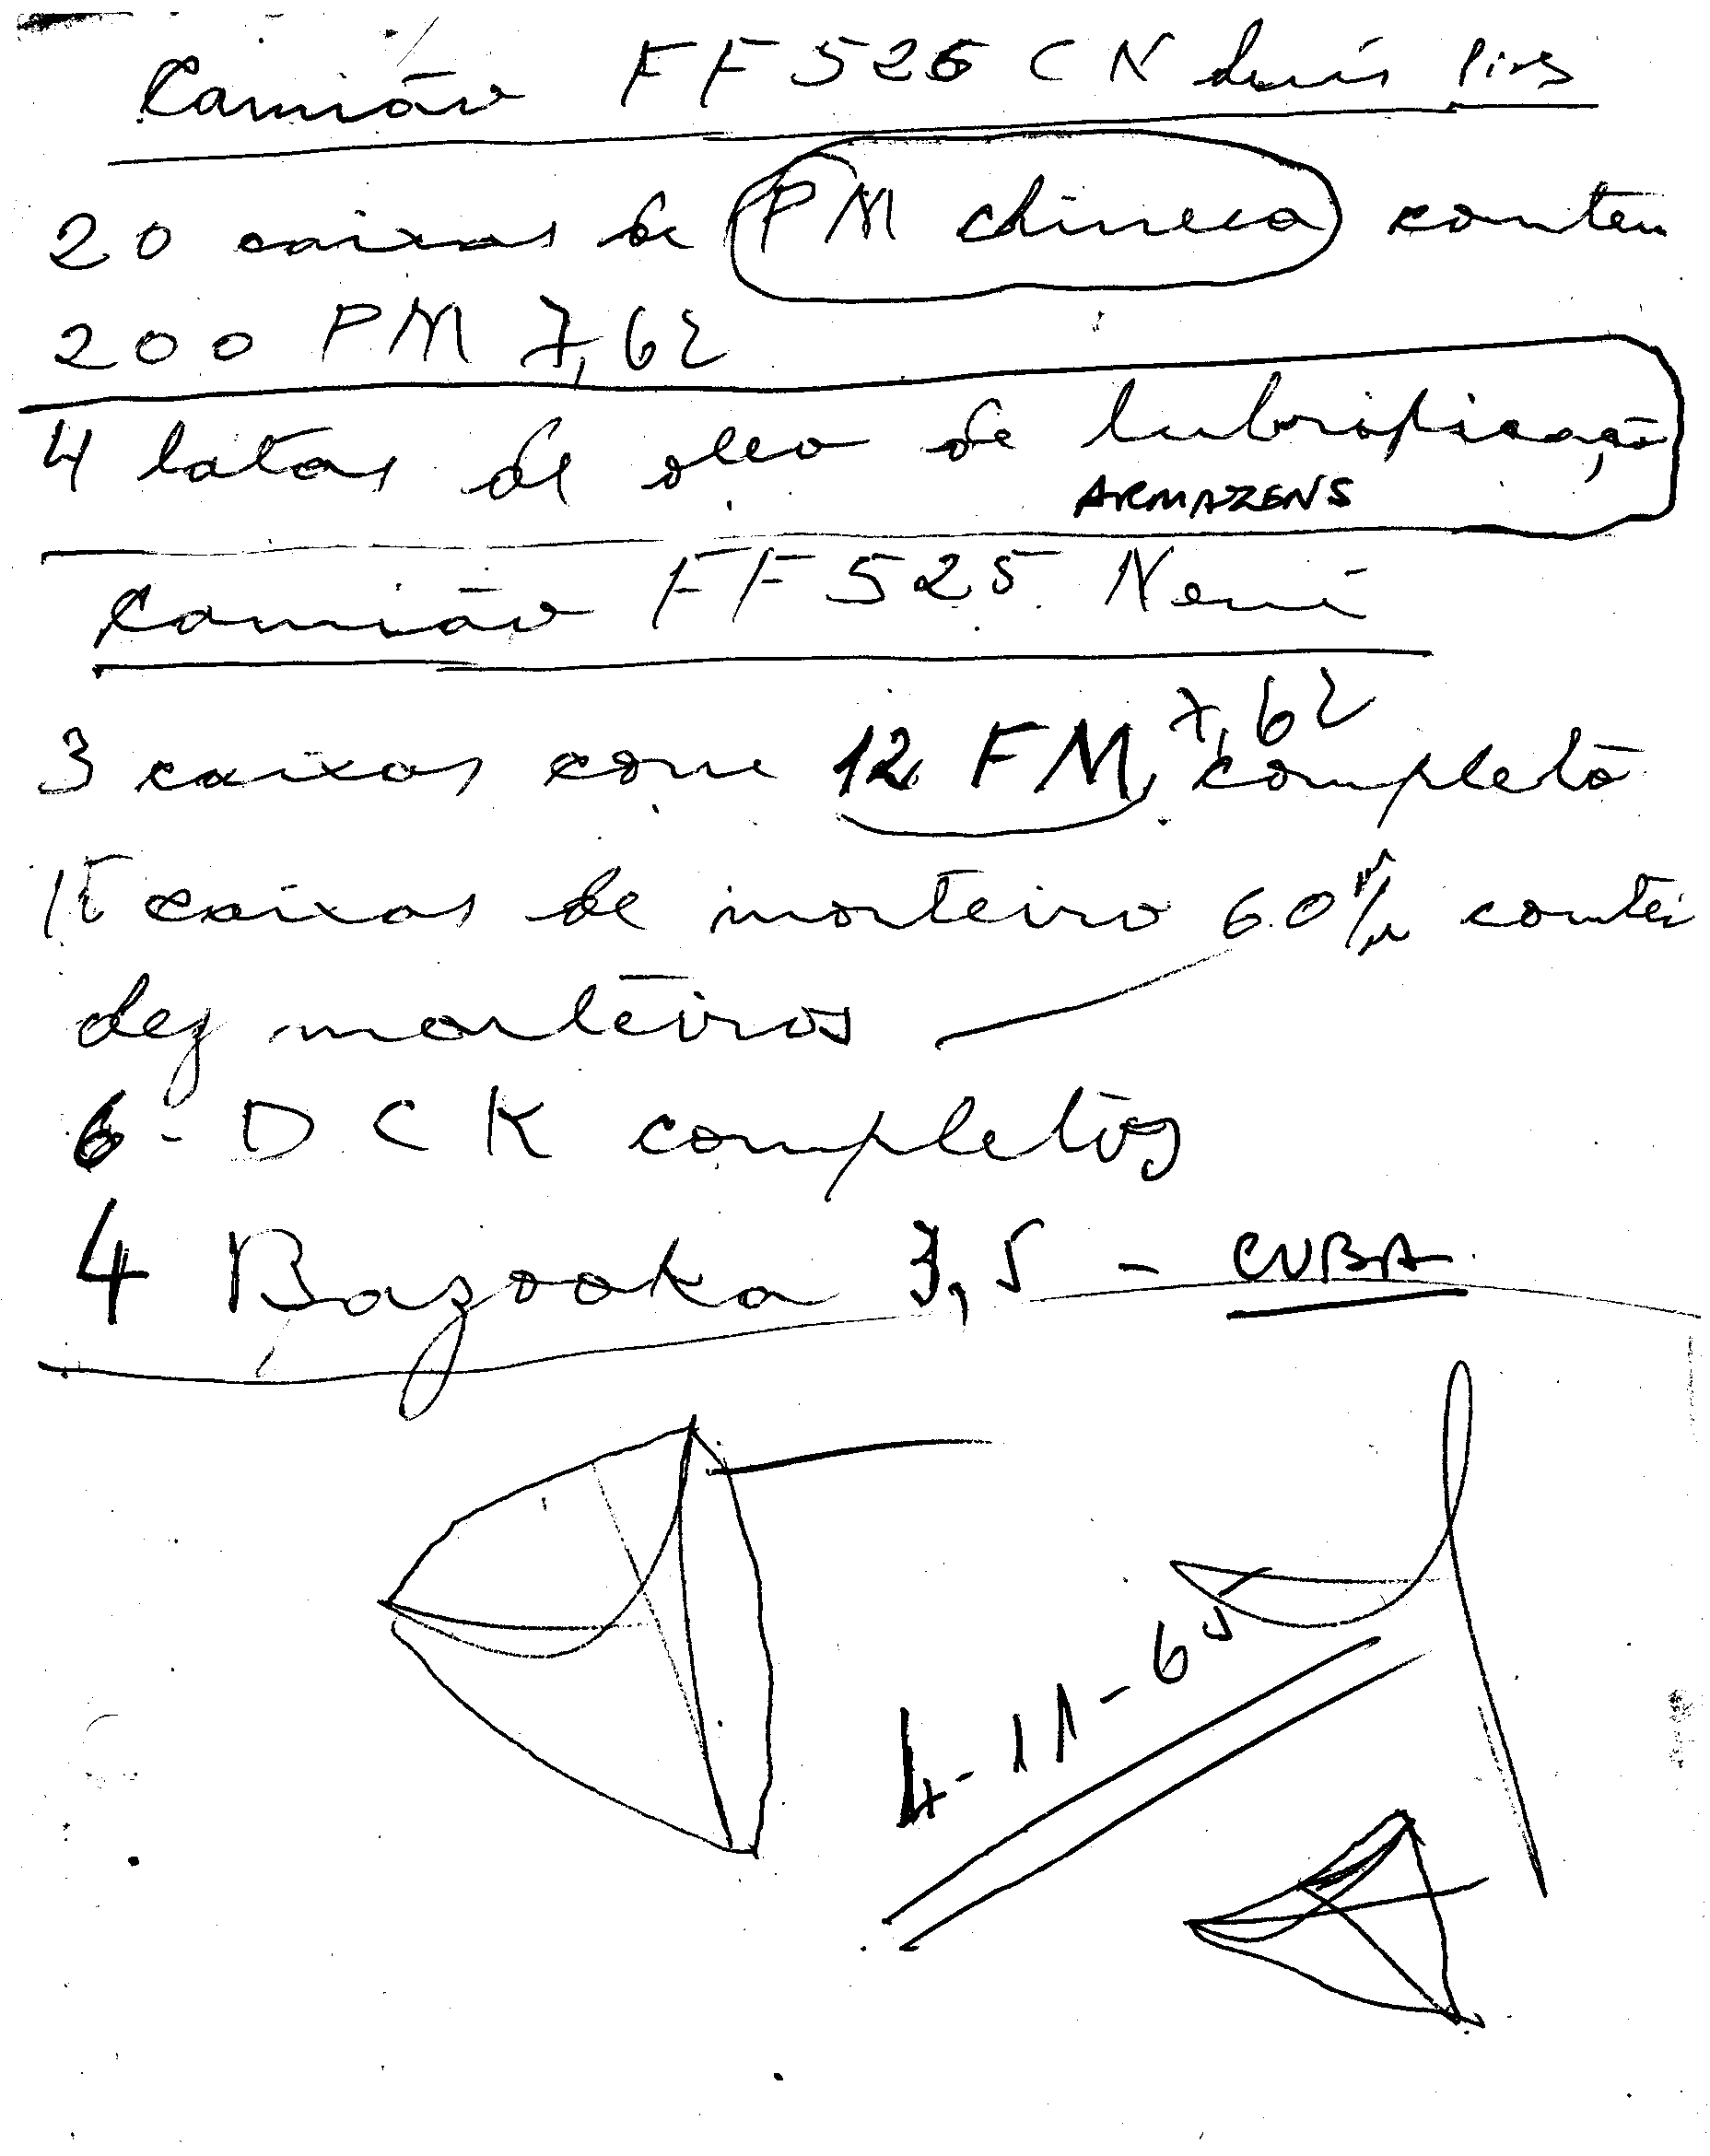 Camião FF 526 CN Luís Pires
20 caixas de PM chinesa conten
200 PM 7,62
4 latas de oleo de lubrificação
ARMAZENS
Camião FF 525 Nené
7,62
3 caixas com 12 FM, completo
caixas de morteiro 60 m/m
dez morteiros
6 - DCK completos
4 Bazooka 3,5 - CUBA
4-11-65